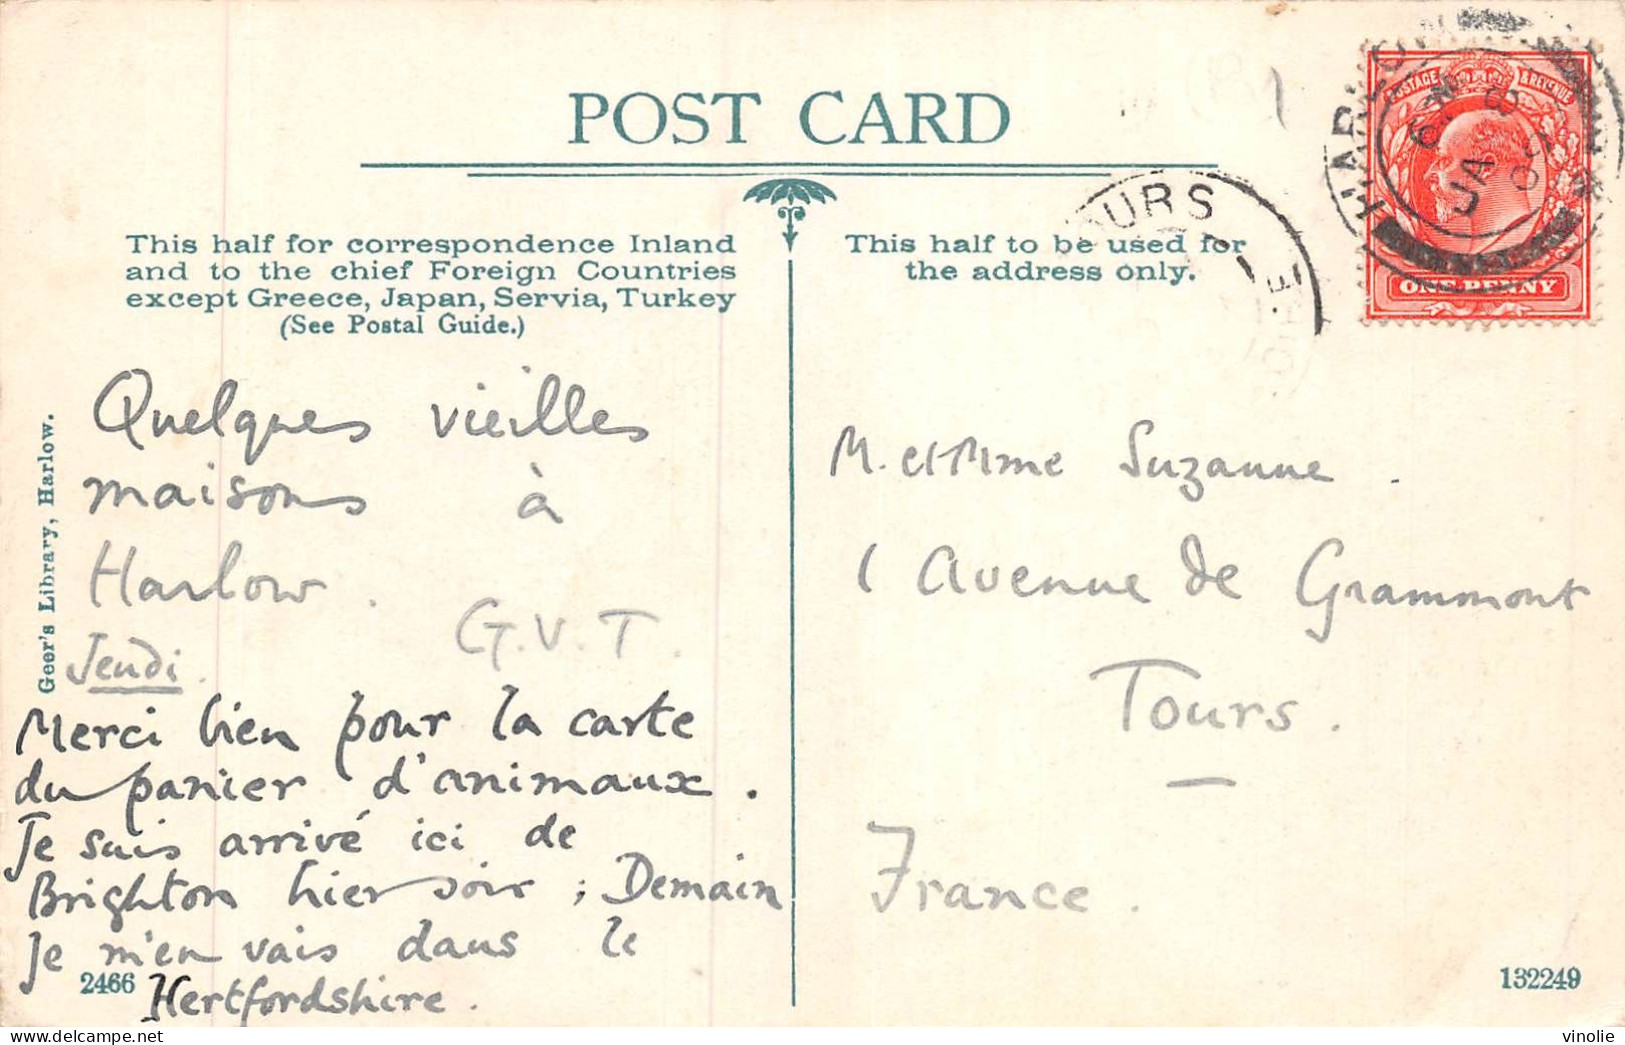 POST CARD
This half for correspondence Inland
and to the chief Foreign Countries
except Greece, Japan, Servia, Turkey
(See Postal Guide.)
This half to be used for
the address only.
TOURS
POSTAGE & REVENUE
ONE PENNY
JA 8
09
Geer's Library, Harlow.
Quelques vieilles
maisons à
Harlow.
G.V.T.
Jeudi.
Merci bien pour la carte
du panier d'animaux.
Je suis arrivé ici de
Brighton hier soir ; Demain
je m'en vais dans le
Hertfordshire.
2466
M. et Mme Suzanne.
1 Avenue de Grammont
Tours.
France.
132249
vinolie